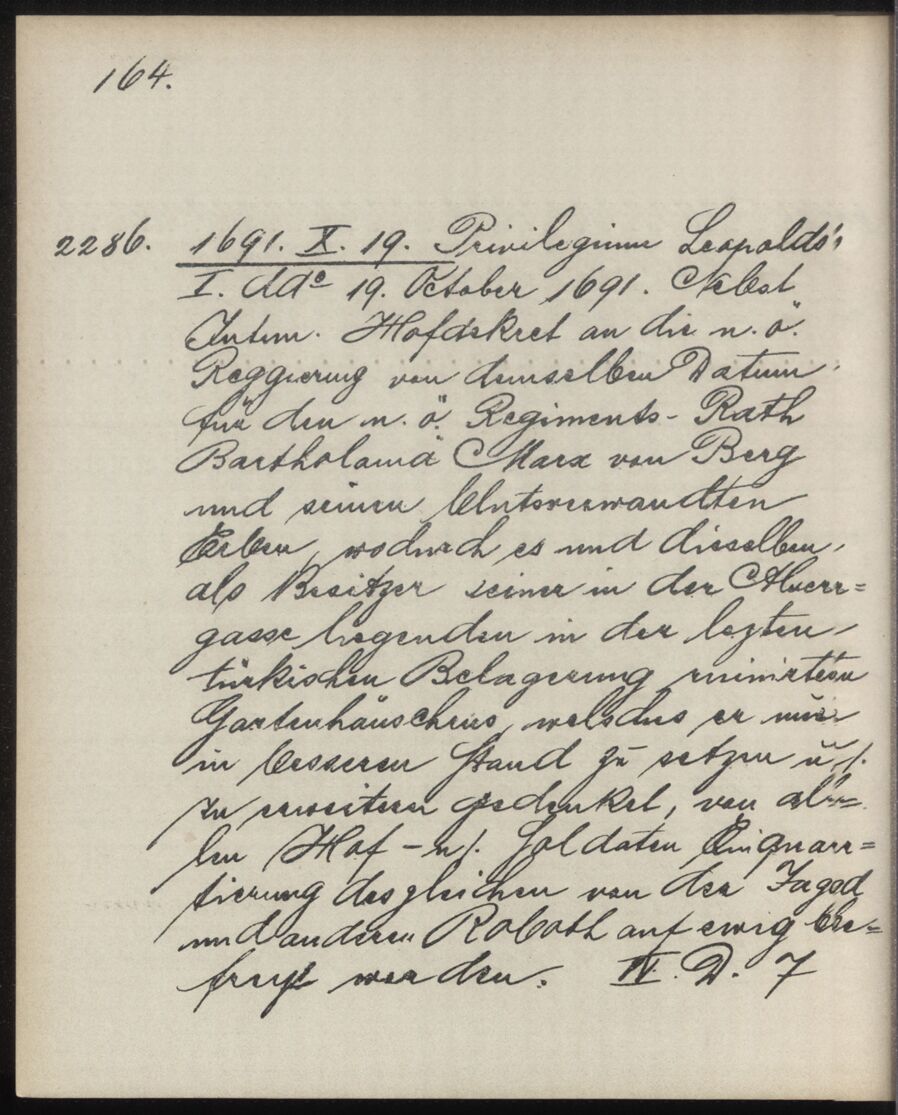 164.
2286. 1691. X. 19. Privilegium Leopolds'
I. ddº 19. October 1691. Nebst
Intim. Hofdekret an die n. ö.
Reggierung von demselben Datum
für den n. ö. Regiments-Rath
Bartholomä Marx von Berg
und seinen
Erben, wodurch es und dieselben,
als Besitzer seiner in der Alserr=
gasse liegenden in der lezten
türkischen Belagerung ruinirten
Gartenhäuschens, welches er nun
in besseren Stand zu setzen u/.
zu erweitern gedenket, von al=
len Hof- u/. Soldaten Einquarr=
tierung desgleichen von der Jagod
und anderen Roboth auf ewig be=
freyt werden. IV. D. 7